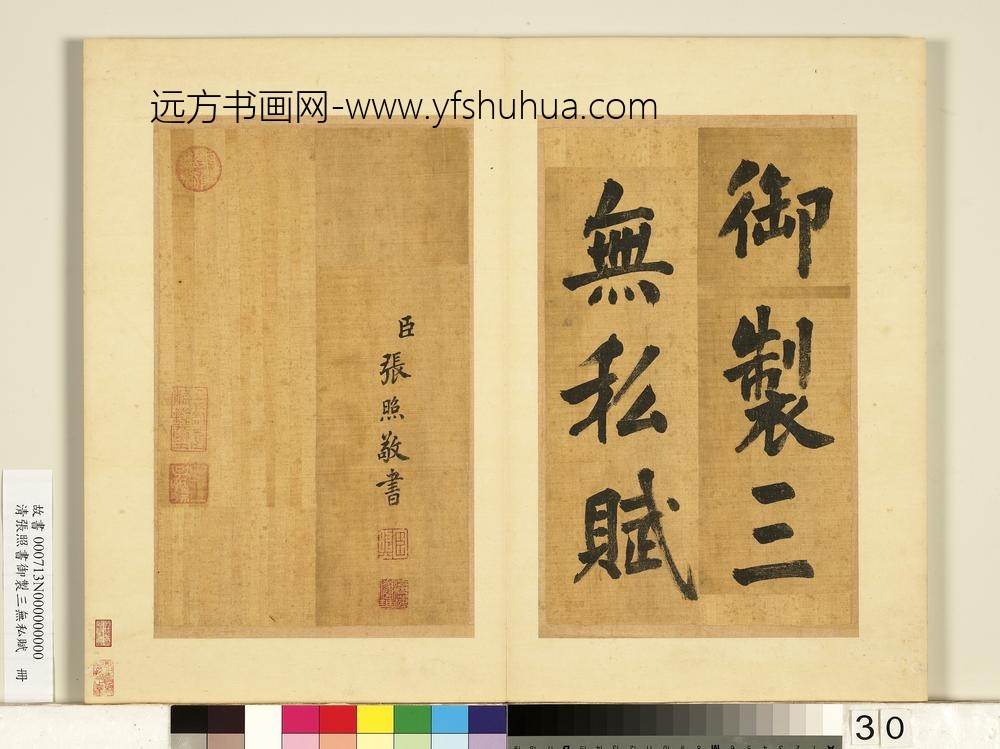 远方书画网-www.yfshuhua.com
御製三
無私賦
臣張照敬書
故書 000713N000000000
清張照書御製三無私賦 冊
30